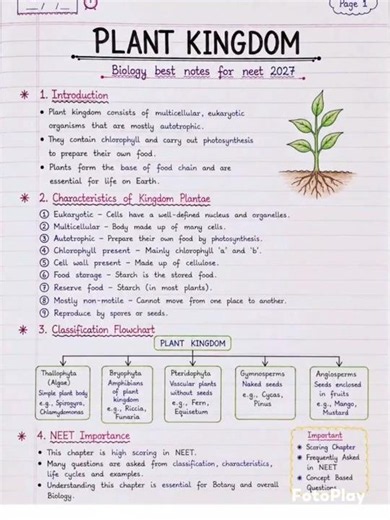 __ / __ / __
Page 1
PLANT KINGDOM
Biology best notes for neet 2027
* 1. Introduction
• Plant kingdom consists of multicellular, eukaryotic
organisms that are mostly autotrophic.
• They contain chlorophyll and carry out photosynthesis
to prepare their own food.
• Plants form the base of food chain and are
essential for life on Earth.
* 2. Characteristics of Kingdom Plantae
① Eukaryotic – Cells have a well-defined nucleus and organelles.
② Multicellular – Body made up of many cells.
③ Autotrophic – Prepare their own food by photosynthesis.
④ Chlorophyll present – Mainly chlorophyll 'a' and 'b'.
⑤ Cell wall present – Made up of cellulose.
⑥ Food storage – Starch is the stored food.
⑦ Reserve food – Starch (in most plants).
⑧ Mostly non-motile – Cannot move from one place to another.
⑨ Reproduce by spores or seeds.
* 3. Classification Flowchart
PLANT KINGDOM
Thallophyta
(Algae)
Simple plant body
e.g., Spirogyra,
Chlamydomonas
Bryophyta
Amphibians
of plant
kingdom
e.g., Riccia,
Funaria
Pteridophyta
Vascular plants
without seeds
e.g., Fern,
Equisetum
Gymnosperms
Naked seeds
e.g., Cycas,
Pinus
Angiosperms
Seeds enclosed
in fruits
e.g., Mango,
Mustard
* 4. NEET Importance
• This chapter is high scoring in NEET.
• Many questions are asked from classification, characteristics,
life cycles and examples.
• Understanding this chapter is essential for Botany and overall
Biology.
Important
* Scoring Chapter
* Frequently Asked
in NEET
* Concept Based
Questions
FotoPlay